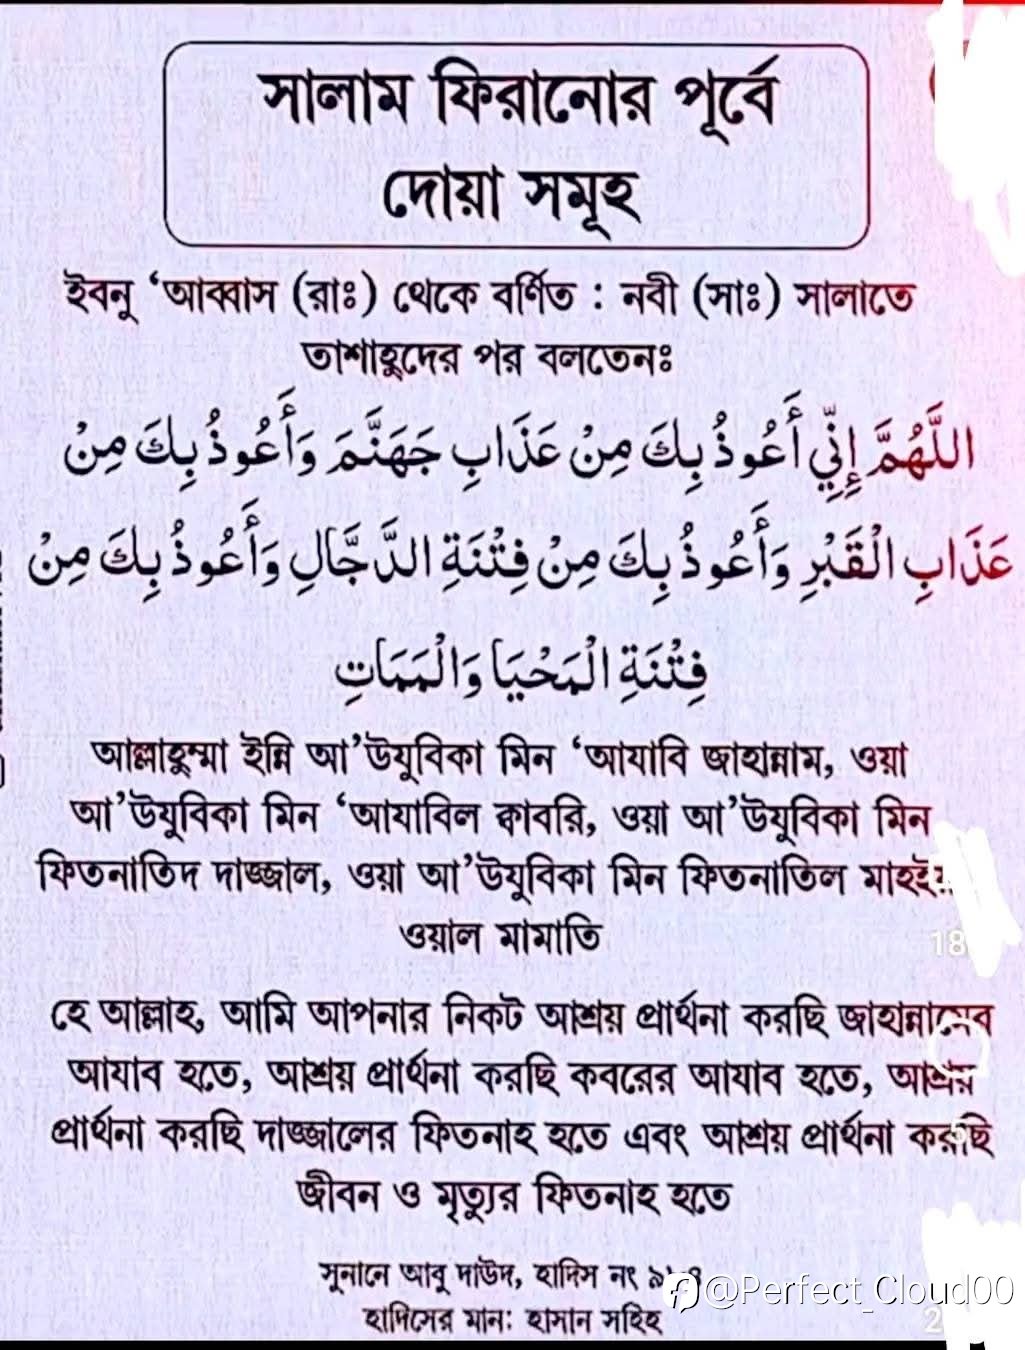 সালাম ফিরানোর পূর্বে
দোয়া সমূহ
ইবনু ‘আব্বাস (রাঃ) থেকে বর্ণিত : নবী (সাঃ) সালাতে
তাশাহুদের পর বলতেনঃ
اللَّهُمَّ إِنِّي أَعُوذُ بِكَ مِنْ عَذَابِ جَهَنَّمَ وَأَعُوذُ بِكَ مِنْ
عَذَابِ الْقَبْرِ وَأَعُوذُ بِكَ مِنْ فِتْنَةِ الدَّجَّالِ وَأَعُوذُ بِكَ مِنْ
فِتْنَةِ الْمَحْيَا وَالْمَمَاتِ
আল্লাহুম্মা ইন্নি আ’উযুবিকা মিন ‘আযাবি জাহান্নাম, ওয়া
আ’উযুবিকা মিন ‘আযাবিল ক্বাবরি, ওয়া আ’উযুবিকা মিন
ফিতনাতিদ দাজ্জাল, ওয়া আ’উযুবিকা মিন ফিতনাতিল
ওয়াল মামাতি
18
হে আল্লাহ, আমি আপনার নিকট আশ্রয় প্রার্থনা করছি জাহান্নামের
আযাব হতে, আশ্রয় প্রার্থনা করছি কবরের আযাব হতে, আশ্রয়
প্রার্থনা করছি দাজ্জালের ফিতনাহ হতে এবং আশ্রয় প্রার্থনা করছি
জীবন ও মৃত্যুর ফিতনাহ হতে
সুনানে আবু দাউদ, হাদিস নং
@Perfect_Cloud00
হাদিসের মান: হাসান সহিহ